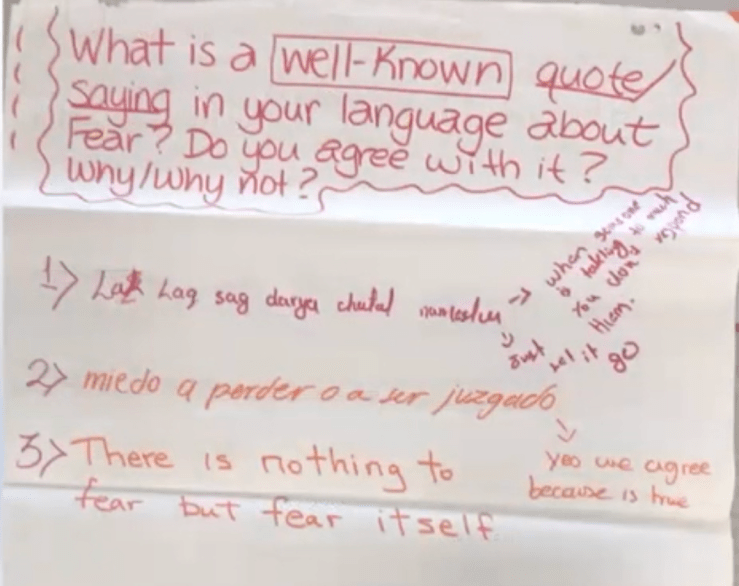 What is a well-Known quote/
saying in your language about
Fear? Do you agree with it?
Why/why not?
1) Lak Lag sag darya chatal
→ when someone
is talking to much
You don't
them.
Just let it go
2) miedo a perder o a ser juzgado
yes we agree
because is true
3) There is nothing to
fear but fear itself